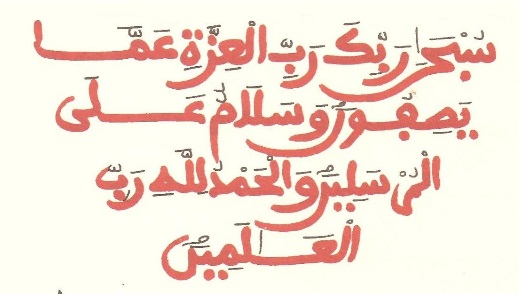 سُبْحَٰنَ رَبِّكَ رَبِّ الْعِزَّةِ عَمَّا
يَصِفُونَ وَسَلَٰمٌ عَلَى
الْمُرْسَلِينَ وَالْحَمْدُ لِلَّهِ رَبِّ
الْعَٰلَمِينَ